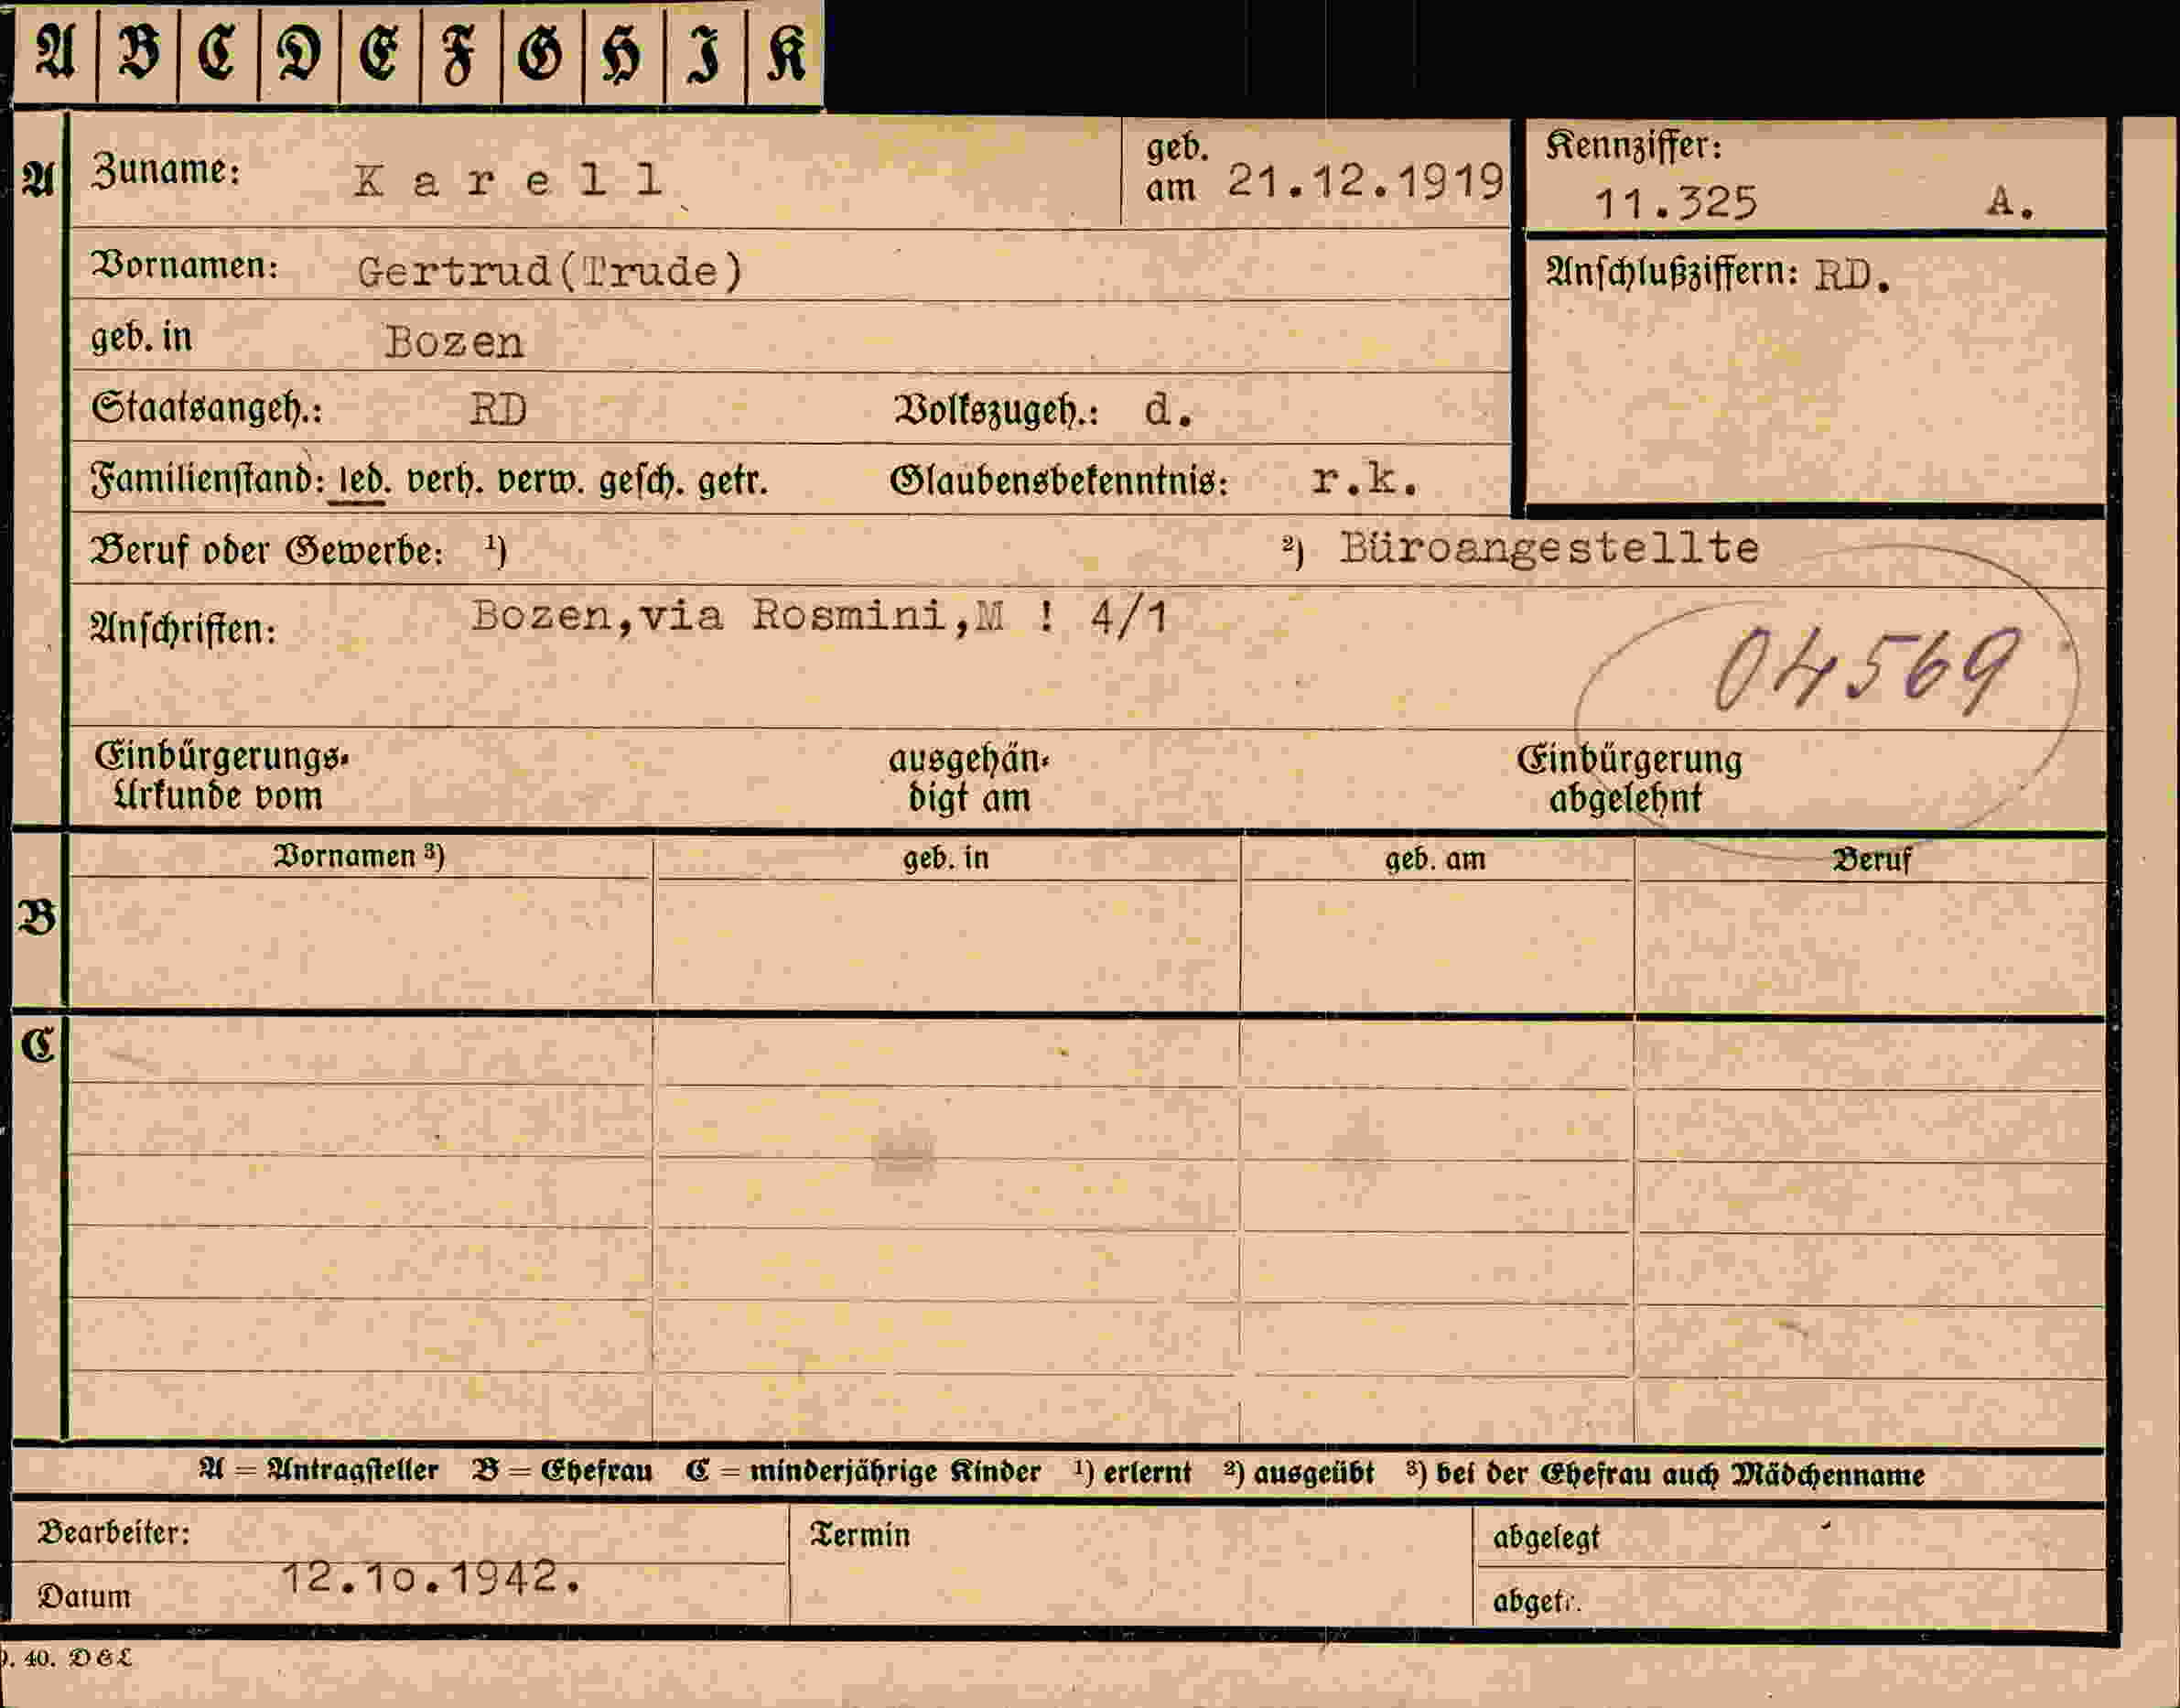 A B C D E F G H I K
A Zuname: Karell geb. am 21.12.1919 Kennziffer: 11.325 A.
Vornamen: Gertrud(Trude) Anschlußziffern: RD.
geb. in Bozen
Staatsangeh.: RD Volkszugeh.: d.
Familienstand: led. verh. verw. gesch. getr. Glaubensbekenntnis: r.k.
Beruf oder Gewerbe: ¹) ²) Büroangestellte
Anschriften: Bozen,via Rosmini,M ! 4/1
04569
Einbürgerungs- ausgehän- Einbürgerung
Urkunde vom digt am abgelehnt
Vornamen ³) geb. in geb. am Beruf
B
C
A = Antragsteller B = Ehefrau C = minderjährige Kinder ¹) erlernt ²) ausgeübt ³) bei der Ehefrau auch Mädchenname
Bearbeiter: Termin abgelegt
Datum 12.10.1942. abgetr.
40. D&L